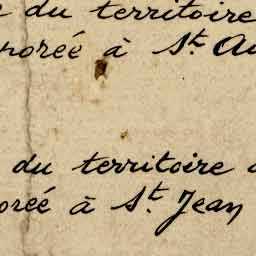 du territoire
à St. Au
du territoire
à St. Jean